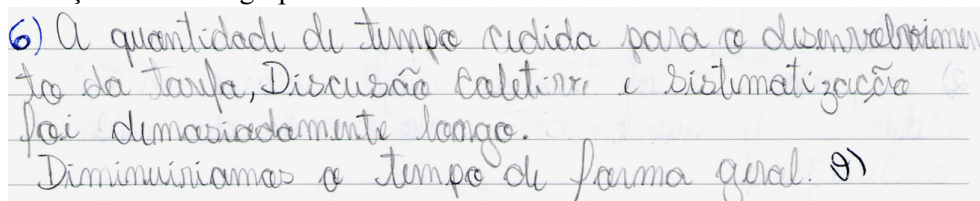 6) A quantidade de tempo cedida para o desenvolvimen
to da tarefa, Discussão Coletiva e Sistematização
foi demasiadamente longo.
Diminuiriamos o tempo de forma geral. 9)